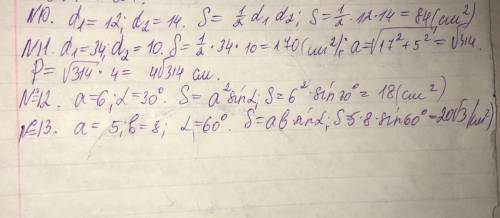 №10. d₁ = 12; d₂ = 14. S = 1/2 d₁ d₂; S = 1/2 · 12 · 14 = 84 (см²)
№11. d₁ = 34; d₂ = 10. S = 1/2 · 34 · 10 = 170 (см²); a = √17² + 5² = √314.
P = √314 · 4 = 4√314 см.
№12. a = 6; α = 30°. S = a² sin α; S = 6² · sin 30° = 18 (см²)
№13. a = 5; b = 8; α = 60°. S = ab sin α; S = 5 · 8 · sin 60° = 20√3 (см²)